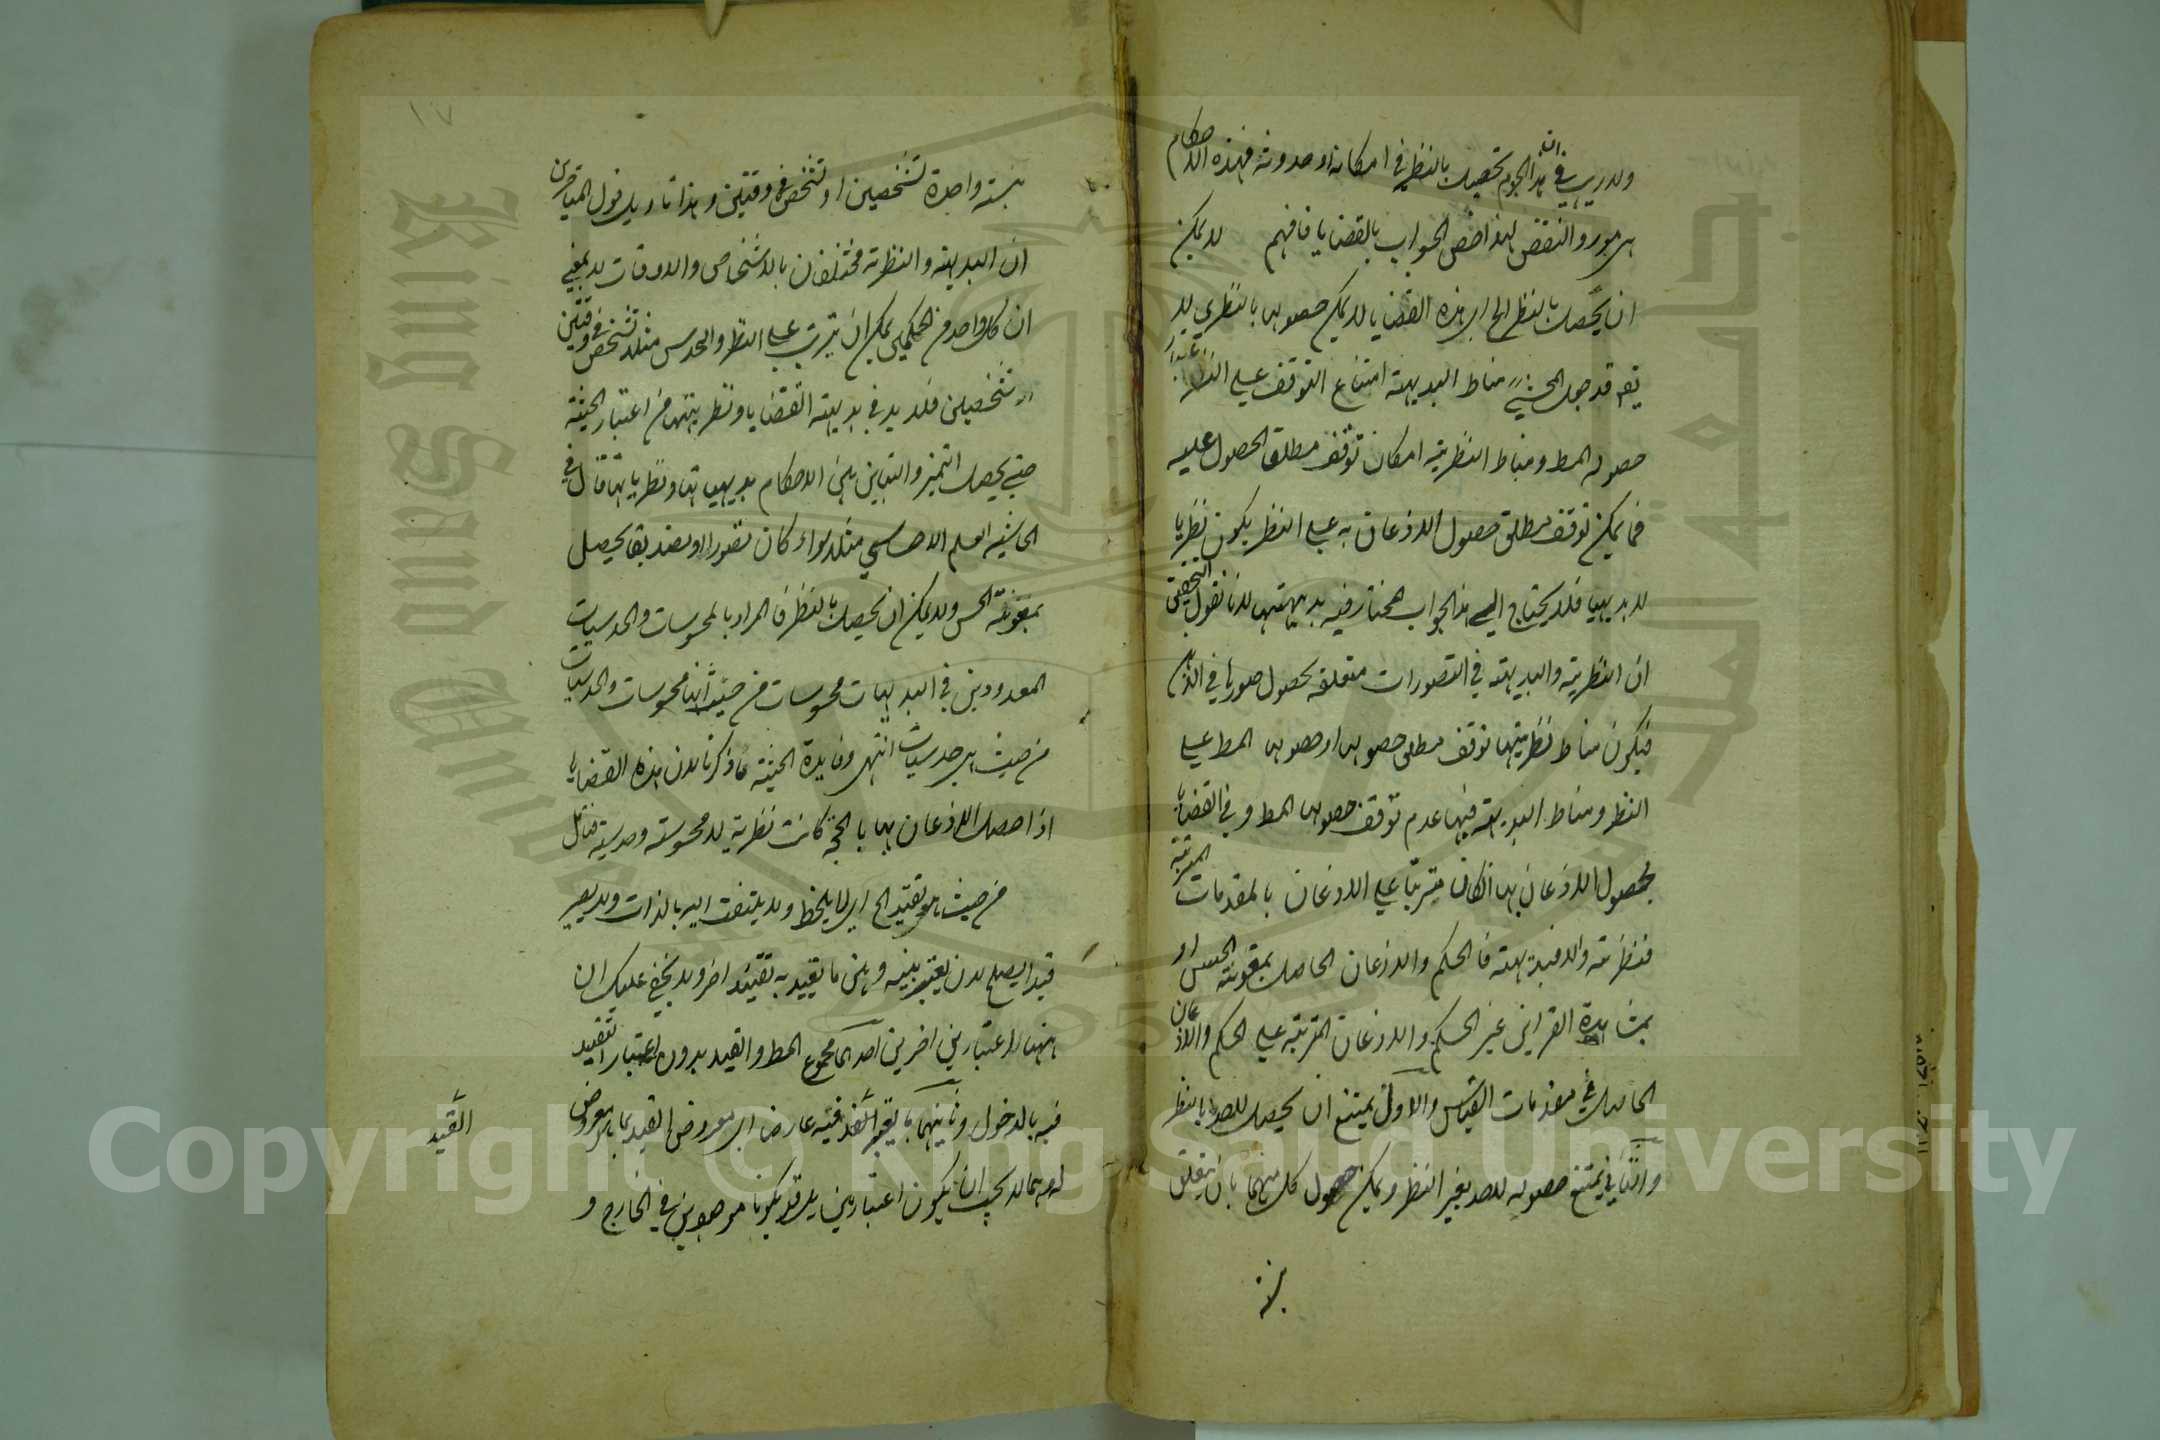 ولا ريب في ان هذا الجزم تحصيله بالنظر في امكانه او حدوثه فهذه الاحكام
هي مورد النقض لهذا خص الجواب بالقضايا فافهم لا يمكن
ان يحصل بالنظر الخ اي هذه القضايا لا يمكن حصولها بالنظر لا
يقم قد جعل المحشي مناط البديهة امتناع التوقف على النظر
حصوله المط ومناط النظرية امكان توقف مطلق الحصول عليه
فما يمكن توقف مطلق حصول الاذعان به على النظر يكون نظريا
لا بديهيا فلا يحتاج الى هذا الجواب المختار فيه بديهتها لانا نقول التحقيق
ان النظرية والبديهة في التصورات متعلقة بحصول صورها في الذهن
فيكون مناط نظريتها توقف مطلق حصولها او حصولها المط على
النظر ومناط البديهة فيها عدم توقف حصولها المط وفي القضايا
بحصول الاذعان بها ان كان مترتبا على الاذعان بالمقدمات المترتبة
فنظرية والا فبديهة فالحكم والاذعان الحاصل بمعونة الحس او
بمشاهدة القراين غير الحكم والاذعان المترتبة على الحكم والاذعان
الحاصل في مقدمات القياس والاول يمتنع ان يحصل للصد بالنظر
والثاني يمتنع حصوله للصد بغير النظر ويمكن حصول كل منهما بان يتعلق
بنسبة
١٧
بنسبة واحدة لشخصين او لشخص في وقتين وهذا تاويل قول المتاخرين
ان البديهة والنظرية مختلفان بالاشخاص والاوقات لا بمعنى
ان كل واحد من الحكمين يمكن ان يترتب على النظر والحدس مثلا لشخص في وقتين
او شخصين فلا بد في بديهة القضايا ونظريتها من اعتبار الحيثية
حتى يحصل التميز والتباين بين الاحكام بديهياتها ونظرياتها قال في
الحاشية العلم الاحساسي مثلا سواء كان تصورا او تصديقا يحصل
بمعونة الحس ولا يمكن ان يحصل بالنظر فالمراد بالمحسوسات والحدسيات
المعدودين في البديهيات محسوسات من حيث انها محسوسات والحدسيات
من حيث هي حدسيات انتهى وفايدة الحيثية ما ذكرنا لان هذه القضايا
اذا حصل الاذعان بها بالحجة كانت نظرية لا محسوسة وحدسية فتامل
من حيث هو تقييد الخ اي لا يلاحظ ولا يلتفت اليه بالذات ولا يصير
قيدا يصلح لان يعتبر بينه وبين ما يقيد به تقييد اخر ولا يخفى عليك ان
ههنا اعتبارين اخرين احدهما مجموع المط والقيد بدون اعتبار التقييد
فيه بالدخول وثانيهما ما يعتبر التقييد فيه عارضا اي معروض القيد بما هو معروض
التقييد
له وهما لا يجب ان يكون اعتباريين بل قد يكونا موجودين في الخارج و
Copyright © King Saud University
King Saud University
جامعة الملك سعود
1957